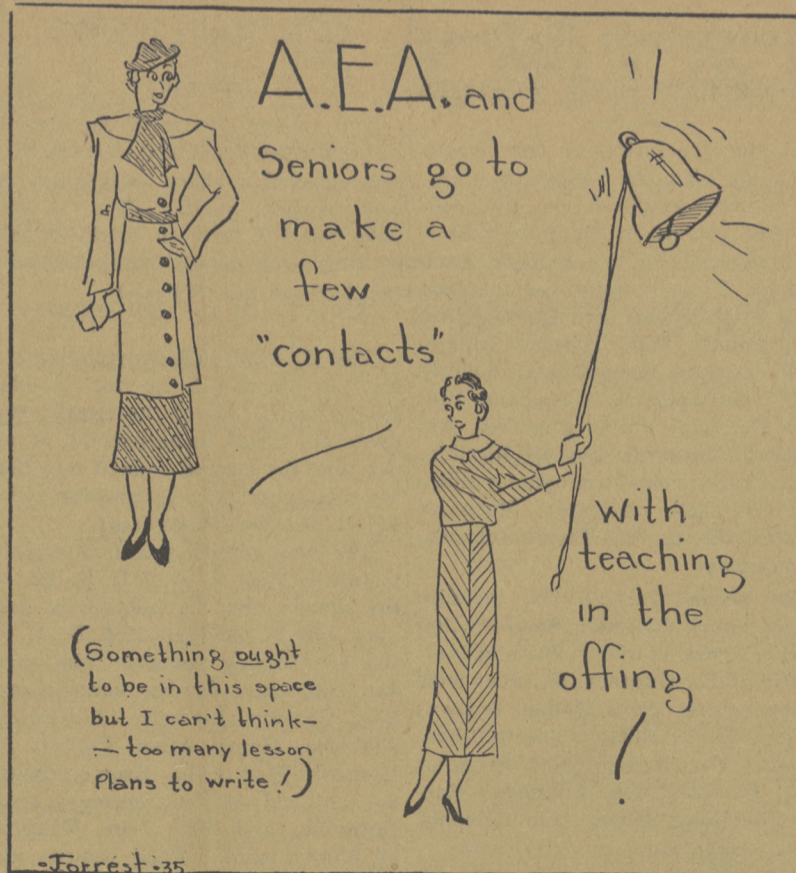 A.E.A. and
Seniors go to
make a
few
"contacts"
with
teaching
in the
offing
!
(Something ought
to be in this space
but I can't think—
— too many lesson
Plans to write!)
-Forrest-35